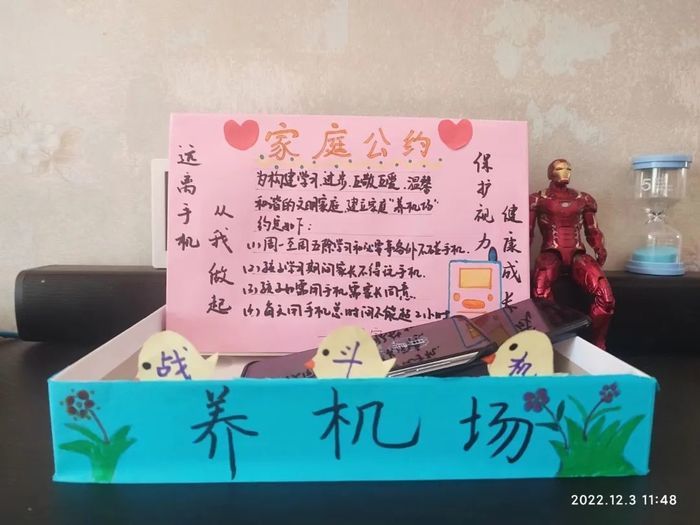 家庭公约
远离手机
从我做起
为构建学习、进步、互敬互爱、温馨
和谐的文明家庭,建立家庭"养机场"
约定如下:
(1)周一至周五除学习和必需事务外不玩手机.
(2)孩子学习期间家长不得玩手机.
(3)孩子如需用手机需家长同意.
(4)每天用手机总时间不能超2小时
保护视力
健康成长
战
斗
养机场
5
2022.12.3 11:48